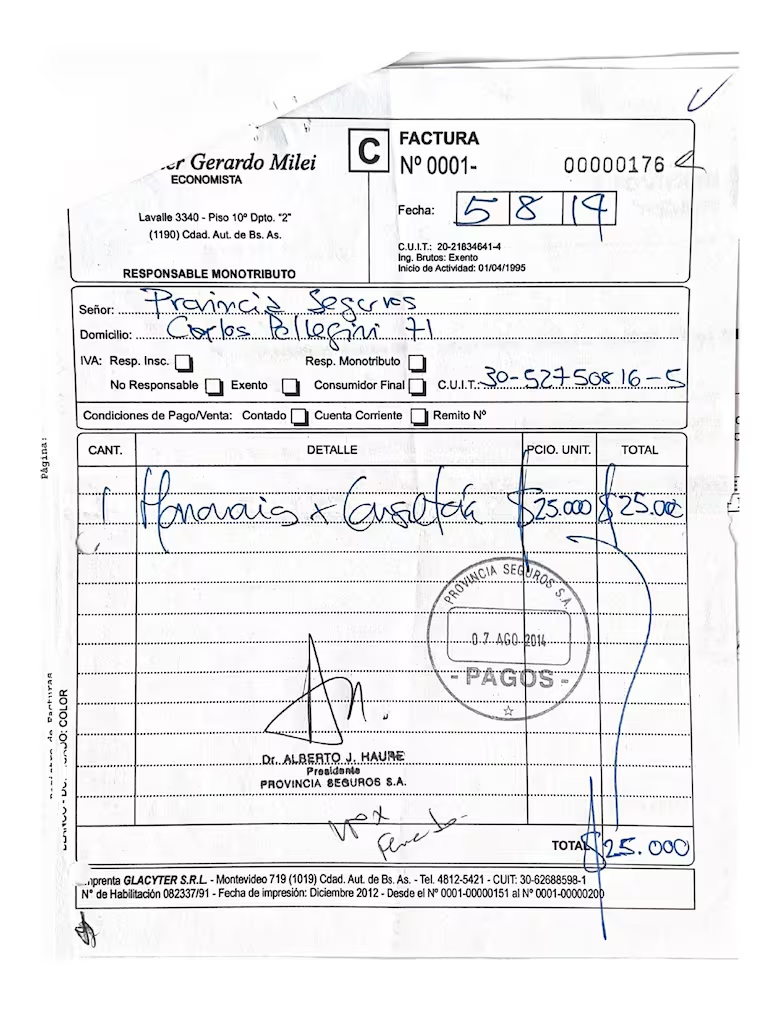 er Gerardo Milei
ECONOMISTA
Lavalle 3340 - Piso 10º Dpto. "2"
(1190) Cdad. Aut. de Bs. As.
RESPONSABLE MONOTRIBUTO
C
FACTURA
Nº 0001- 00000176
Fecha: 5 8 14
C.U.I.T.: 20-21834641-4
Ing. Brutos: Exento
Inicio de Actividad: 01/04/1995
Señor: Provincia Seguros
Domicilio: Carlos Pellegini 71
IVA: Resp. Insc. Resp. Monotributo
No Responsable Exento Consumidor Final C.U.I.T.: 30-52750816-5
Condiciones de Pago/Venta: Contado Cuenta Corriente Remito Nº
CANT. DETALLE PCIO. UNIT. TOTAL
1 Honorarios x Consultoría $25.000 $25.000
PROVINCIA SEGUROS S.A.
07 AGO 2014
- PAGOS -
Dr. ALBERTO J. HAURE
Presidente
PROVINCIA SEGUROS S.A.
TOTAL $25.000
mprenta GLACYTER S.R.L. - Montevideo 719 (1019) Cdad. Aut. de Bs. As. - Tel. 4812-5421 - CUIT: 30-62688598-1
N° de Habilitación 082337/91 - Fecha de impresión: Diciembre 2012 - Desde el Nº 0001-00000151 al Nº 0001-00000200
Página:
COLOR